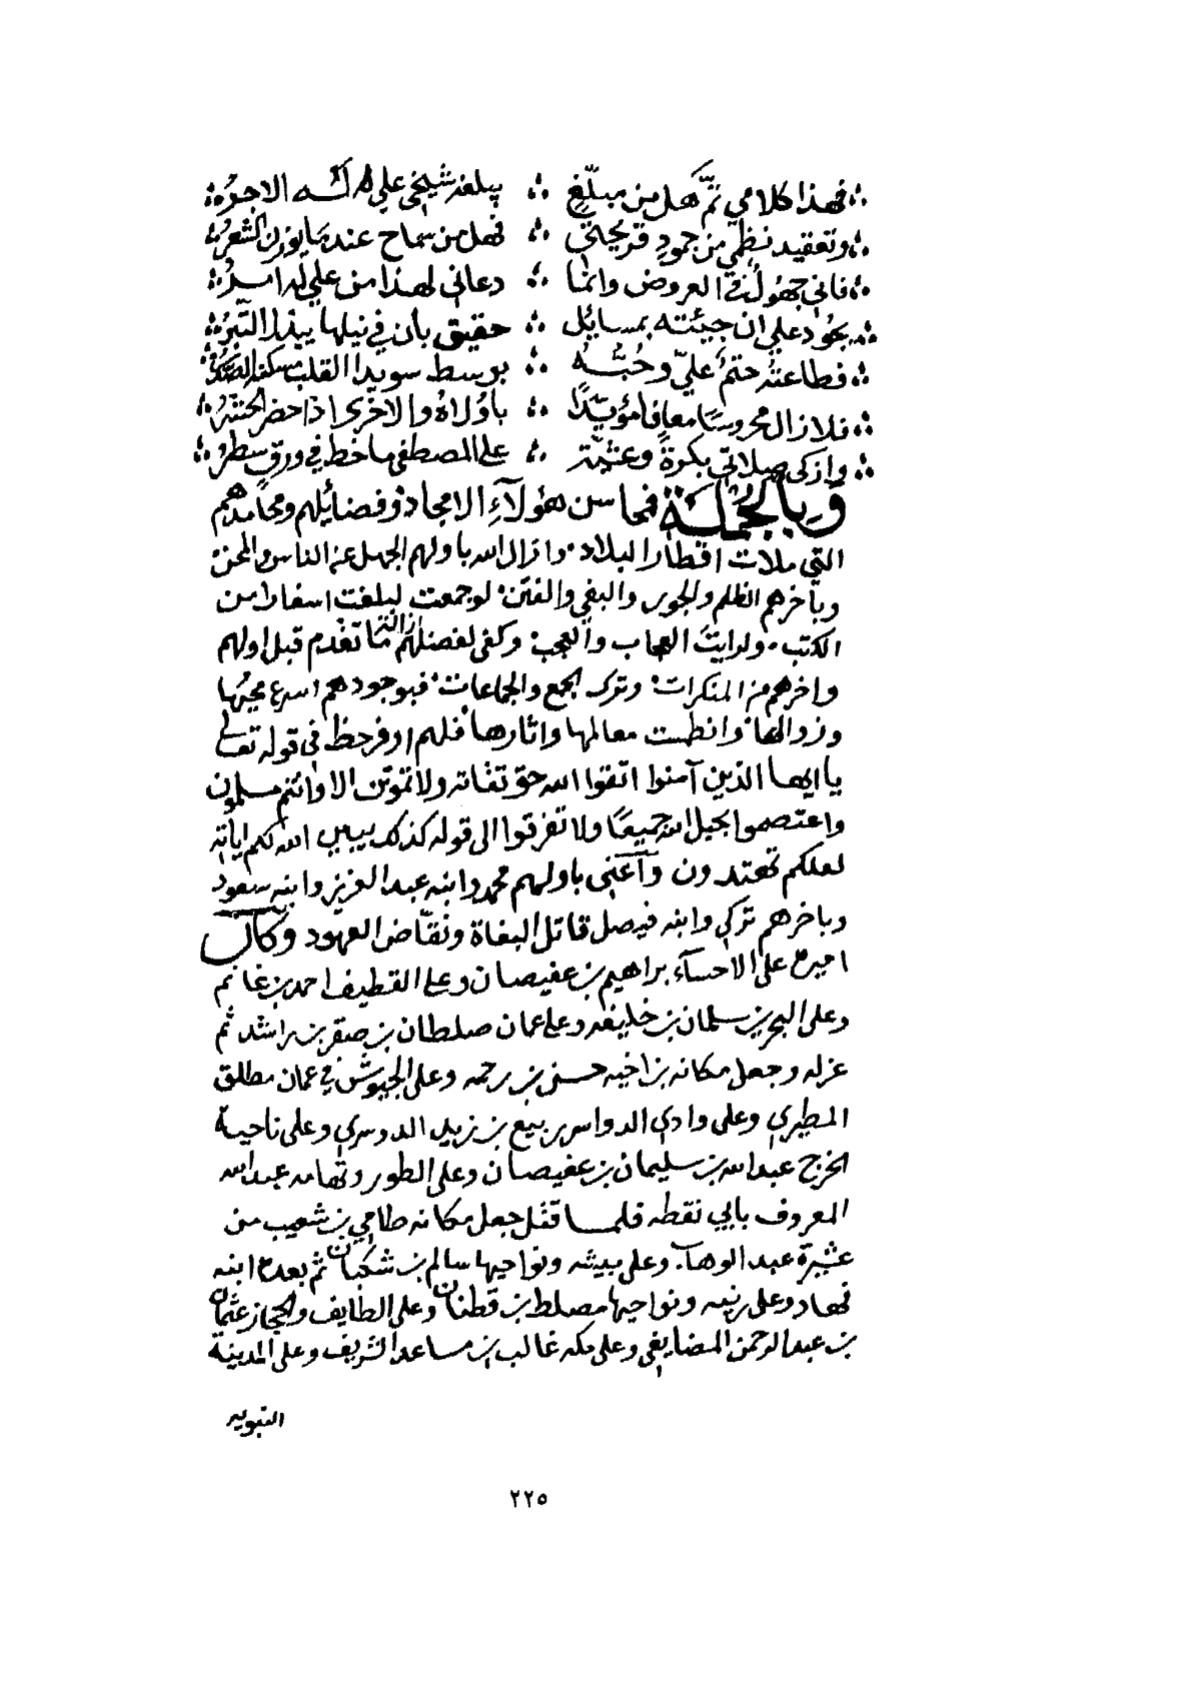 فهذا كلامي تم هل من مبلغ ∴ يبلغه شيخي علي له الاجر
وتعقيد نظمي من جمود قريحتي ∴ فهل من سماح عندما يوزن الشعر
فاني جهول في العروض وانما ∴ دعاني لهذا من علي له امر
يجود علي ان جيئته بمسايل ∴ حقيق بان في نيلها يبذل التبر
فطاعته حتم علي وحبه ∴ بوسط سويدا القلب مسكنه الصدر
فلا زال محروسا معافا مؤيدا ∴ باولاه والاخرى اذا حضر الحشر
وازكى صلاتي بكرة وعشية ∴ على المصطفى ما خط في ورق سطر
وبالجملة فمحاسن هؤلآء الامجاد وفضائيلهم ومحامدهم
التي ملات اقطار البلاد وازال الله باولهم الجهل عن الناس والمحن
وباخرهم الظلم والجور والبغي والفتن لو جمعت لبلغت اسفارا من
الكتب ولرايت العجاب والعجب وكفى لفضلهم ازالته ما تقدم قبل اولهم
واخرهم من المنكرات وترك الجمع والجماعات فبوجودهم اسرع محيها
وزوالها وانطمست معالمها واثارها فلهم اوفر حظ في قوله تعالى
يا ايها الذين آمنوا اتقوا الله حق تقاته ولا تموتن الا وانتم مسلمون
واعتصموا بحبل الله جميعا ولا تفرقوا الى قوله كذلك يبين الله لكم اياته
لعلكم تهتدون وآعني باولهم محمد وابنه عبد العزيز وابنه سعود
وباخرهم تركي وابنه فيصل قاتل البغاة ونقاض العهود وكان
اميره على الاحسآء براهيم بن عفيصان وعلى القطيف احمد بن غانم
وعلى البحرين سلمان بن خليفه وعلى عمان صلطان بن صقر بن راشد ثم
عزله وجعل مكانه بن اخيه حسن بن رحمه وعلى الجيوش في عمان مطلق
المطيري وعلى وادي الدواسر ربيع بن زيد الدوسري وعلى ناحية
الخرج عبد الله بن سليمان بن عفيصان وعلى الطور وتهامه عبد الله
المعروف بابي نقطه فلما قتل جعل مكانه طامي بن شعيب من
عشيرة عبد الوهاب وعلى بيشه ونواحيها سالم بن شكبان ثم بعده ابنه
فهاد وعلى رنيه ونواحيها مصلط بن قطنان وعلى الطايف والحجاز عثمان
بن عبد الرحمن المضايفي وعلى مكه غالب بن مساعد الشريف وعلى المدينة
النبويه
٢٢٥